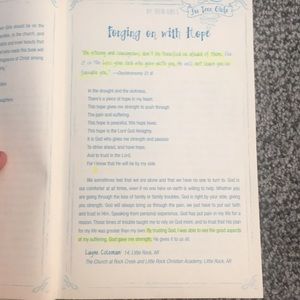 BY TEEN GIRLS
For Teen Girls
Forging on with Hope
"Be strong and courageous, don't be terrified or afraid of them. For
it is the Lord your God who goes with you. He will not leave you or
forsake you." —Deuteronomy 31:6
In the drought and the darkness,
There's a piece of hope in my heart.
This hope gives me strength to push through
The pain and suffering.
This hope is peaceful, this hope lives,
This hope is the Lord God Almighty.
It is God who gives me strength and passion
To strive ahead, and have hope,
And to trust in the Lord.
For I know that He will be by my side.
We sometimes feel that we are alone and that we have no one to turn to. God is
our comforter at all times, even if no one here on earth is willing to help. Whether you
are going through the loss of family or family troubles, God is right by your side, giving
you strength. God will always bring us through the pain, we just have to put our faith
and trust in Him. Speaking from personal experience, God has put pain in my life for a
reason. Those times of trouble taught me to rely on God more, and to trust that His plan
for my life was greater than my own. By trusting God, I was able to see the good aspects
of my suffering. God gave me strength; He gives it to us all.
Layne Coleman, 14, Little Rock, AR
The Church at Rock Creek and Little Rock Christian Academy, Little Rock, AR